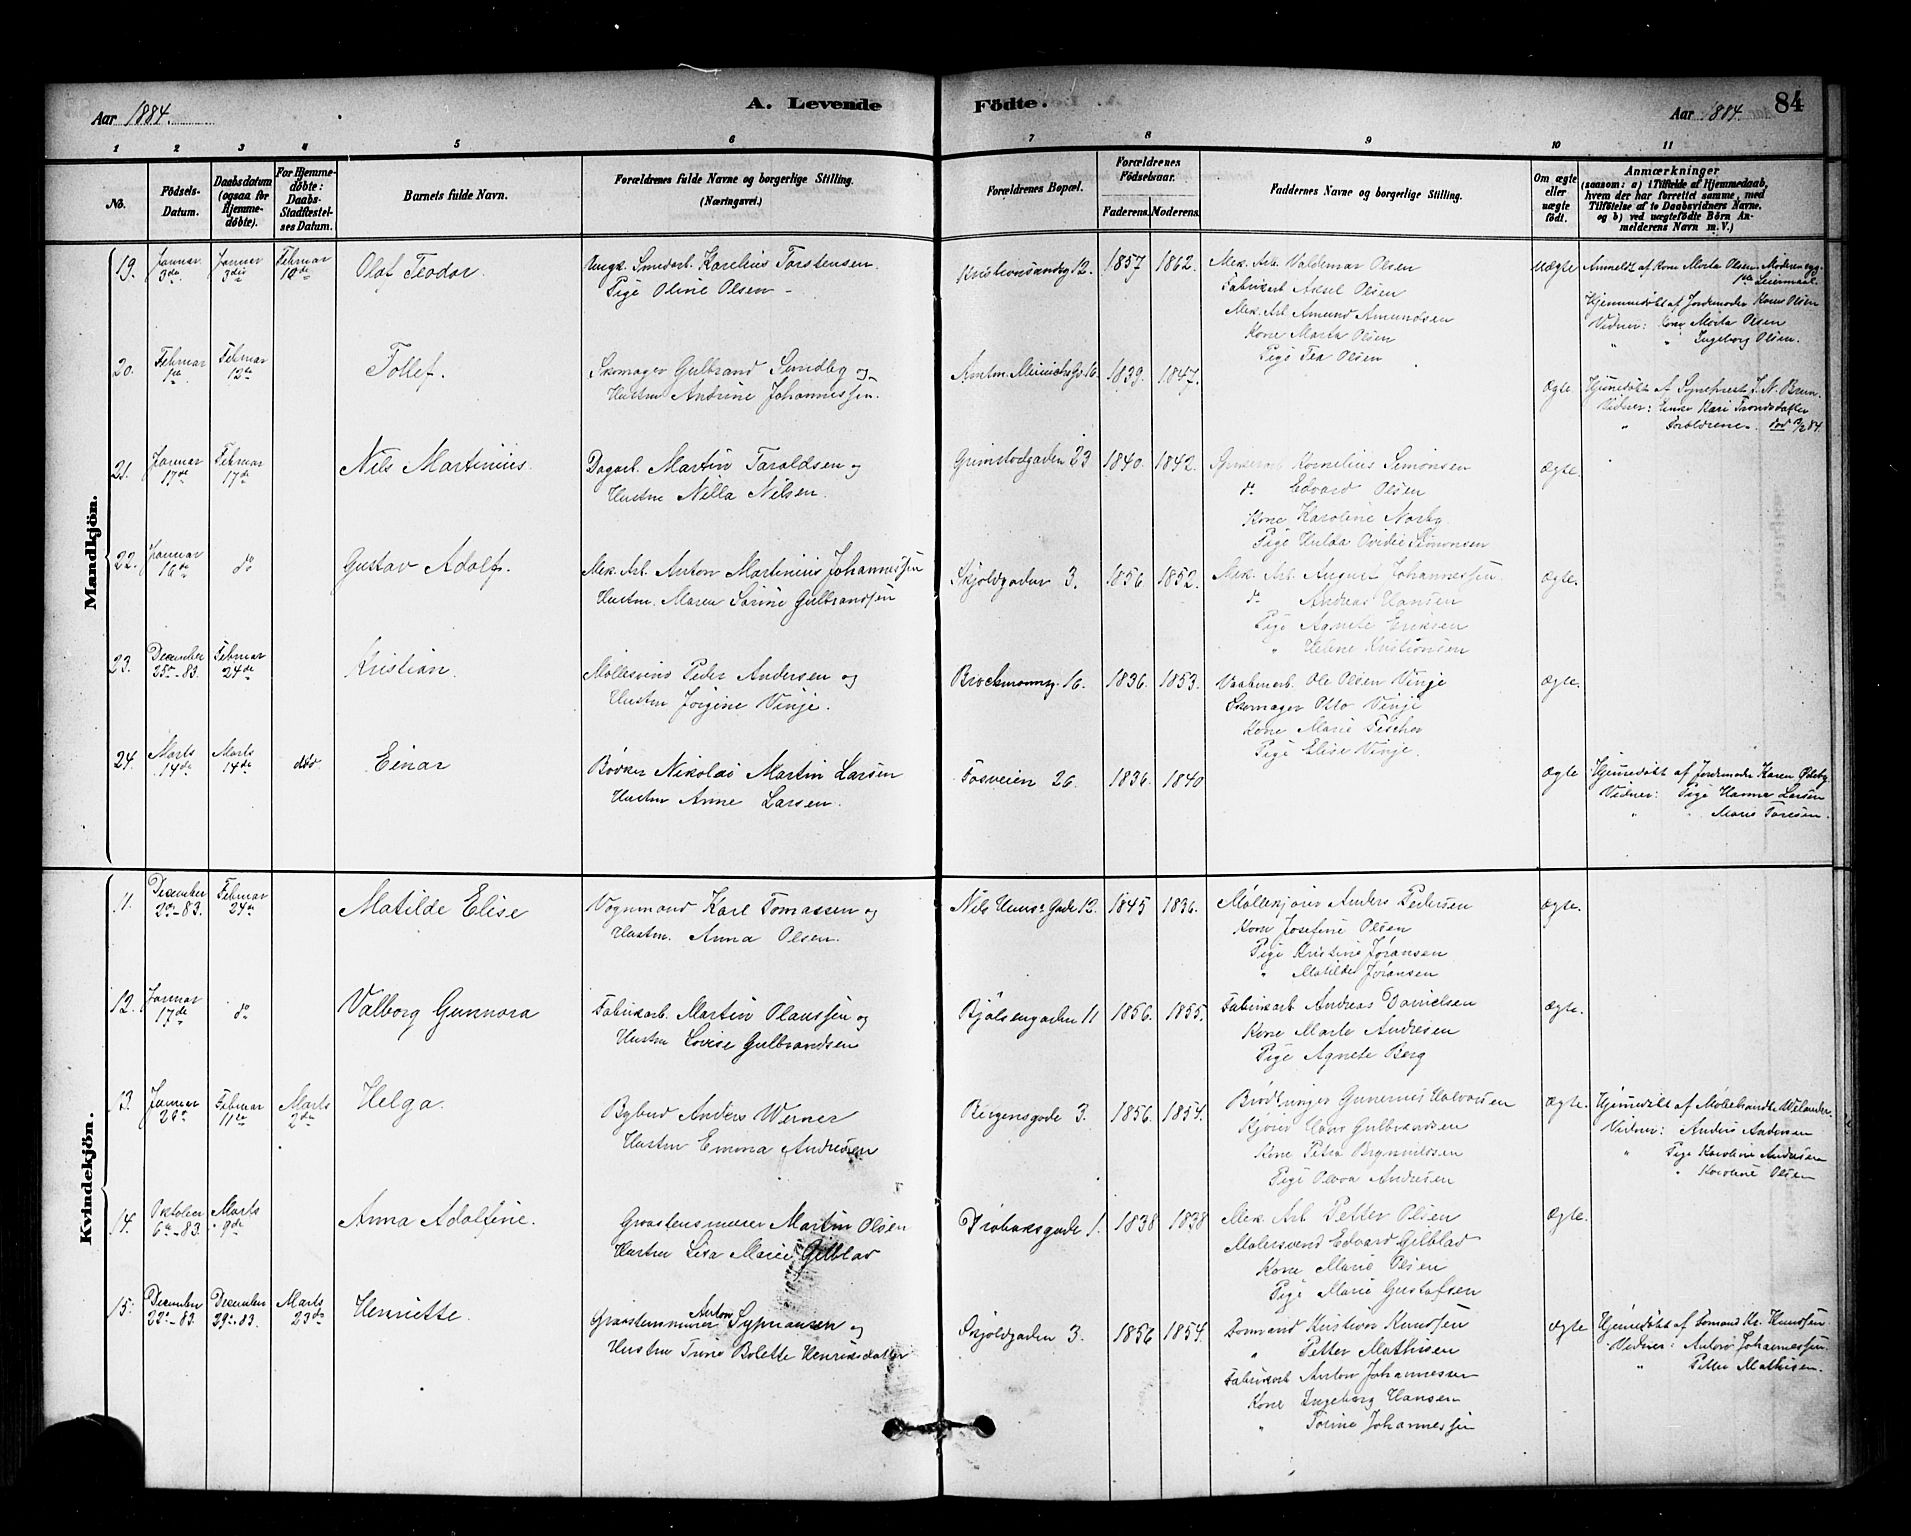 Aar 1884. A. Levende Födte. Aar 1884. 84
1 2 3 4 5 6 7 8 9 10 11
No.
Födsels-Datum.
Daabsdatum (ogsaa for Hjemme-döbte).
For Hjemme-döbte: Daabs-Stadfæstel-ses Datum.
Barnets fulde Navn.
Forældrenes fulde Navne og borgerlige Stilling. (Næringsvei.)
Forældrenes Bopæl.
Forældrenes Födselsaar.
Faderens. Moderens.
Faddernes Navne og borgerlige Stilling.
Om ægte eller uægte födt.
Anmærkninger
(saasom: a) i Tilfælde af Hjemmedaab, hvem der har forrettet samme, med Tilföielse af to Daabsvidners Navne, og b) ved uægtefödte Börn Anmelderens Navn m. V.)
Mandkjön.
19. Januar 3die Januar 3die Februar 10de Olaf Teodor.
Ungk. Smedarb. Karelius Torstensen.
Pige Oline Olsen
Kristiansandsg 12. 1857 1862.
Mek. Arb. Valdemar Olsen
Fabrikarb Aksel Olsen
Mek. Arb Amund Amundsen
Kone Marta Olsen
Pige Tea Olsen
Uægte Anmeldt af Kone Marta Olsen. Moderen
1ste Leiermaal.
Hjemmedøbt af Jordemoder Karen Olsen
Vidner: Kone Marta Olsen
" " Ingeborg Olsen.
20. Februar Februar 12te Tollef.
Skomager Gulbrand Smedby og
Hustru Andrine Johannessen.
Amtm. Meinichsg. 16. 1839. 1847.
Ægte. Hjemedøbt af Sogneprest J. N. Brun.
Vidner: Enke Kari Trondsdatter
" Forældrene. død 84.
21. Januar 17de Februar 17de Nils Martinius.
Dagarb. Martin Taraldsen og
Hustru Nilla Nilsen.
Grimstadgaden 23 1840. 1842.
Kornelius Simonsen
do Edvard Olsen
Kone Karoline Norby
Pige Hulda Ovidie Simonsen
Ægte.
22. Januar 16de do Gustav Adolf.
Mek. Arb. Anton Martinius Johannessen
Hustru. Maren Sørine Gulbrandsen
Skjoldgaden 3. 1856 1852.
Mek. Arb. August Johannessen
do Andreas Hansen
Pige Agnete Eriksen
" Helene Kristiansen
Ægte.
23. December 25-83. Februar 24de Kristian.
Møllesvend Peder Andersen og
Hustru Jørgine Vinje.
Brochmannsg. 16. 1836. 1853.
Vaabenarb. Ole Olsen Vinje
Skomager Otto Vinje
Kone Marie Fischer
Pige Elise Vinje.
Ægte.
24. Marts 14de Marts 14de død Einar
Bødker Nikolai Martin Larsen
Hustru Anne Larsen.
Fosveien 26. 1836. 1840
Ægte Hjemedøbt af Jordemoder Karen Ødeby
Vidner: Pige Hanna Larsen
" " Marie Toresen.
Kvindekjön.
11. December 2-83. Februar 24de Matilde Elise
Vognmand Karl Tomassen og
Hustru. Anna Olsen.
Nils Huus's Gade 12. 1845 1836.
Møllekjører Anders Pedersen
Kone Josefine Olsen
Pige Kristine Jøransen
" Matilde Jøransen
Ægte.
12. Januar 17de do Valborg Gunnora
Fabrikarb. Martin Olaussen og
Hustru Lovise Gulbrandsen
Bjølsengaden 11 1856. 1855.
Fabrikarb Andreas Danielsen
Kone Marte Andresen
Pige Agnete Berg
Ægte.
13. Januar Februar 11te Marts 2de Helga.
Bybud Anders Werner
Hustru Emma Andresen
Bergensgade 3. 1856. 1854.
Gunerius Halvorsen
Kjører Gulbrandsen
Kone Petra Brynnildsen
Pige Andresen
Ægte. Hjemedøbt af
Vidner: Anders Andersen
" Pige Karoline Andresen
" Karoline Olsen
14. Oktober 6te-83. Marts 9de Anna Adolfine.
Graastensmurer Martin Olsen
Hustru Lisa Marie Gilblad
Drøbaksgade 1. 1838 1838
Mek. Arb. Petter Olsen
Malersvend Edvard Gilblad
Kone Marie Olsen
Pige Marie Gustafsen
Ægte.
15. December 22-83. December 29-83. Marts 23de Henriette.
Graastensmurer Anton Syphausen og
Hustru Trine Bolette Henriksdatter
Skjoldgaden 3. 1856 1854.
Bomand Kristian Knudsen
" Petter Mathisen
Fabrikarb Anton Johannessen
Kone Ingeborg Hansen
" Torine Johannessen
ægte Hjemedøbt af Bomand Kr. Knudsen
Vidner: Anton Johannessen.
" Petter Mathisen.